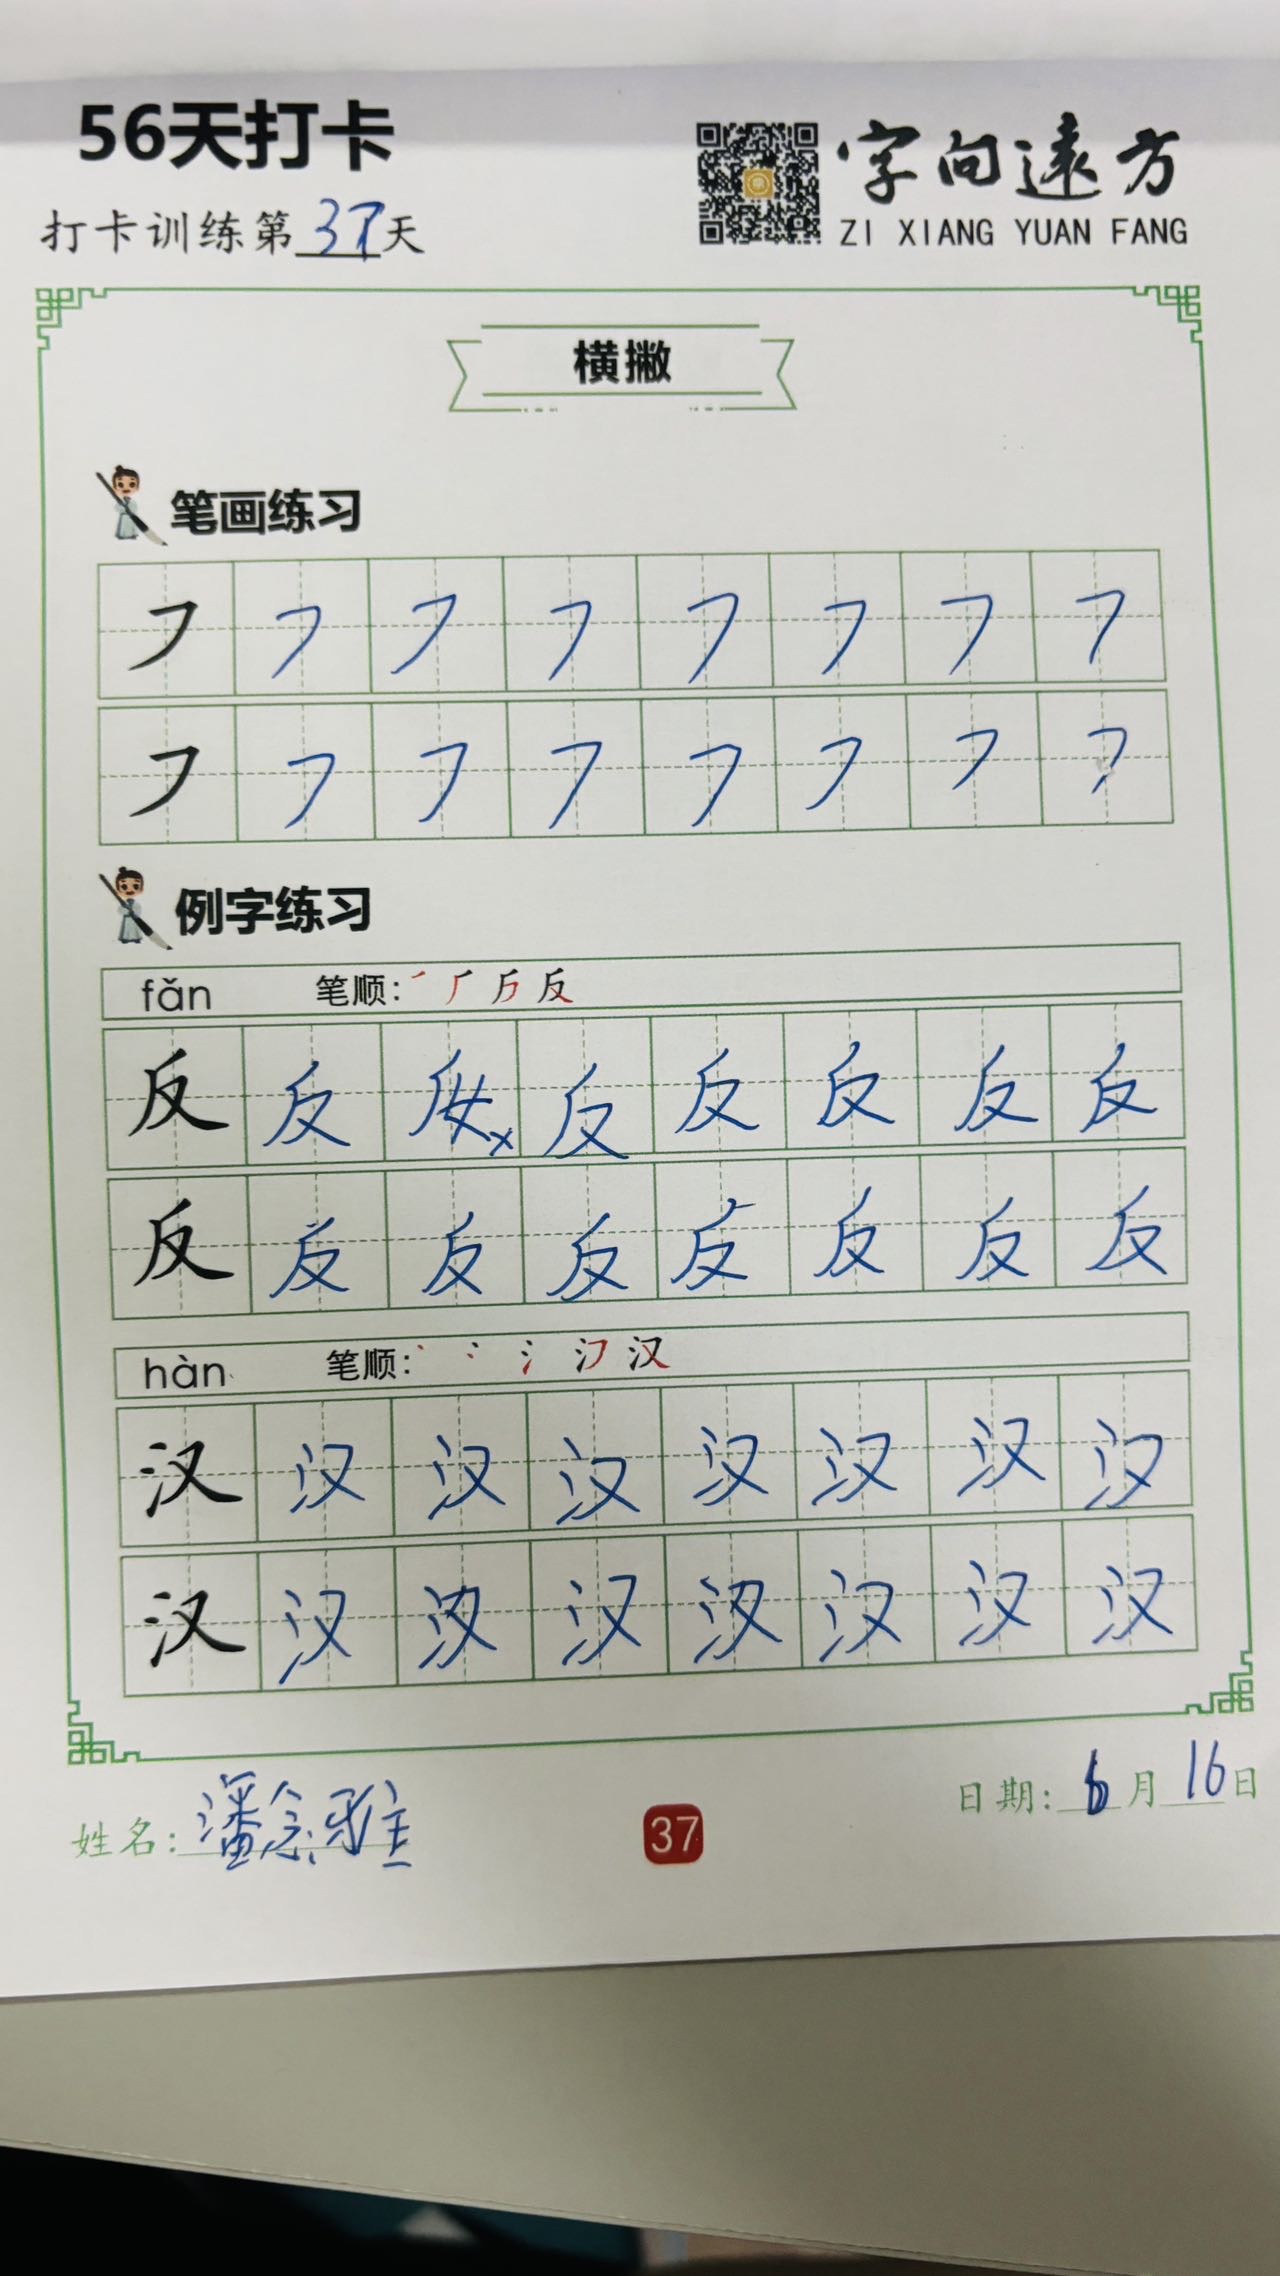 56天打卡
字向遠方
打卡训练第37天
ZI XIANG YUAN FANG
横撇
笔画练习
㇇ ㇇ ㇇ ㇇ ㇇ ㇇ ㇇ ㇇
㇇ ㇇ ㇇ ㇇ ㇇ ㇇ ㇇ ㇇
例字练习
fǎn 笔顺: 反
反 反 反 反 反 反 反
反 反 反 反 反 反 反 反
hàn 笔顺: 汉
汉 汉 汉 汉 汉 汉 汉 汉
汉 汉 汉 汉 汉 汉 汉 汉
日期: 6月16日
姓名: 潘念雅
37